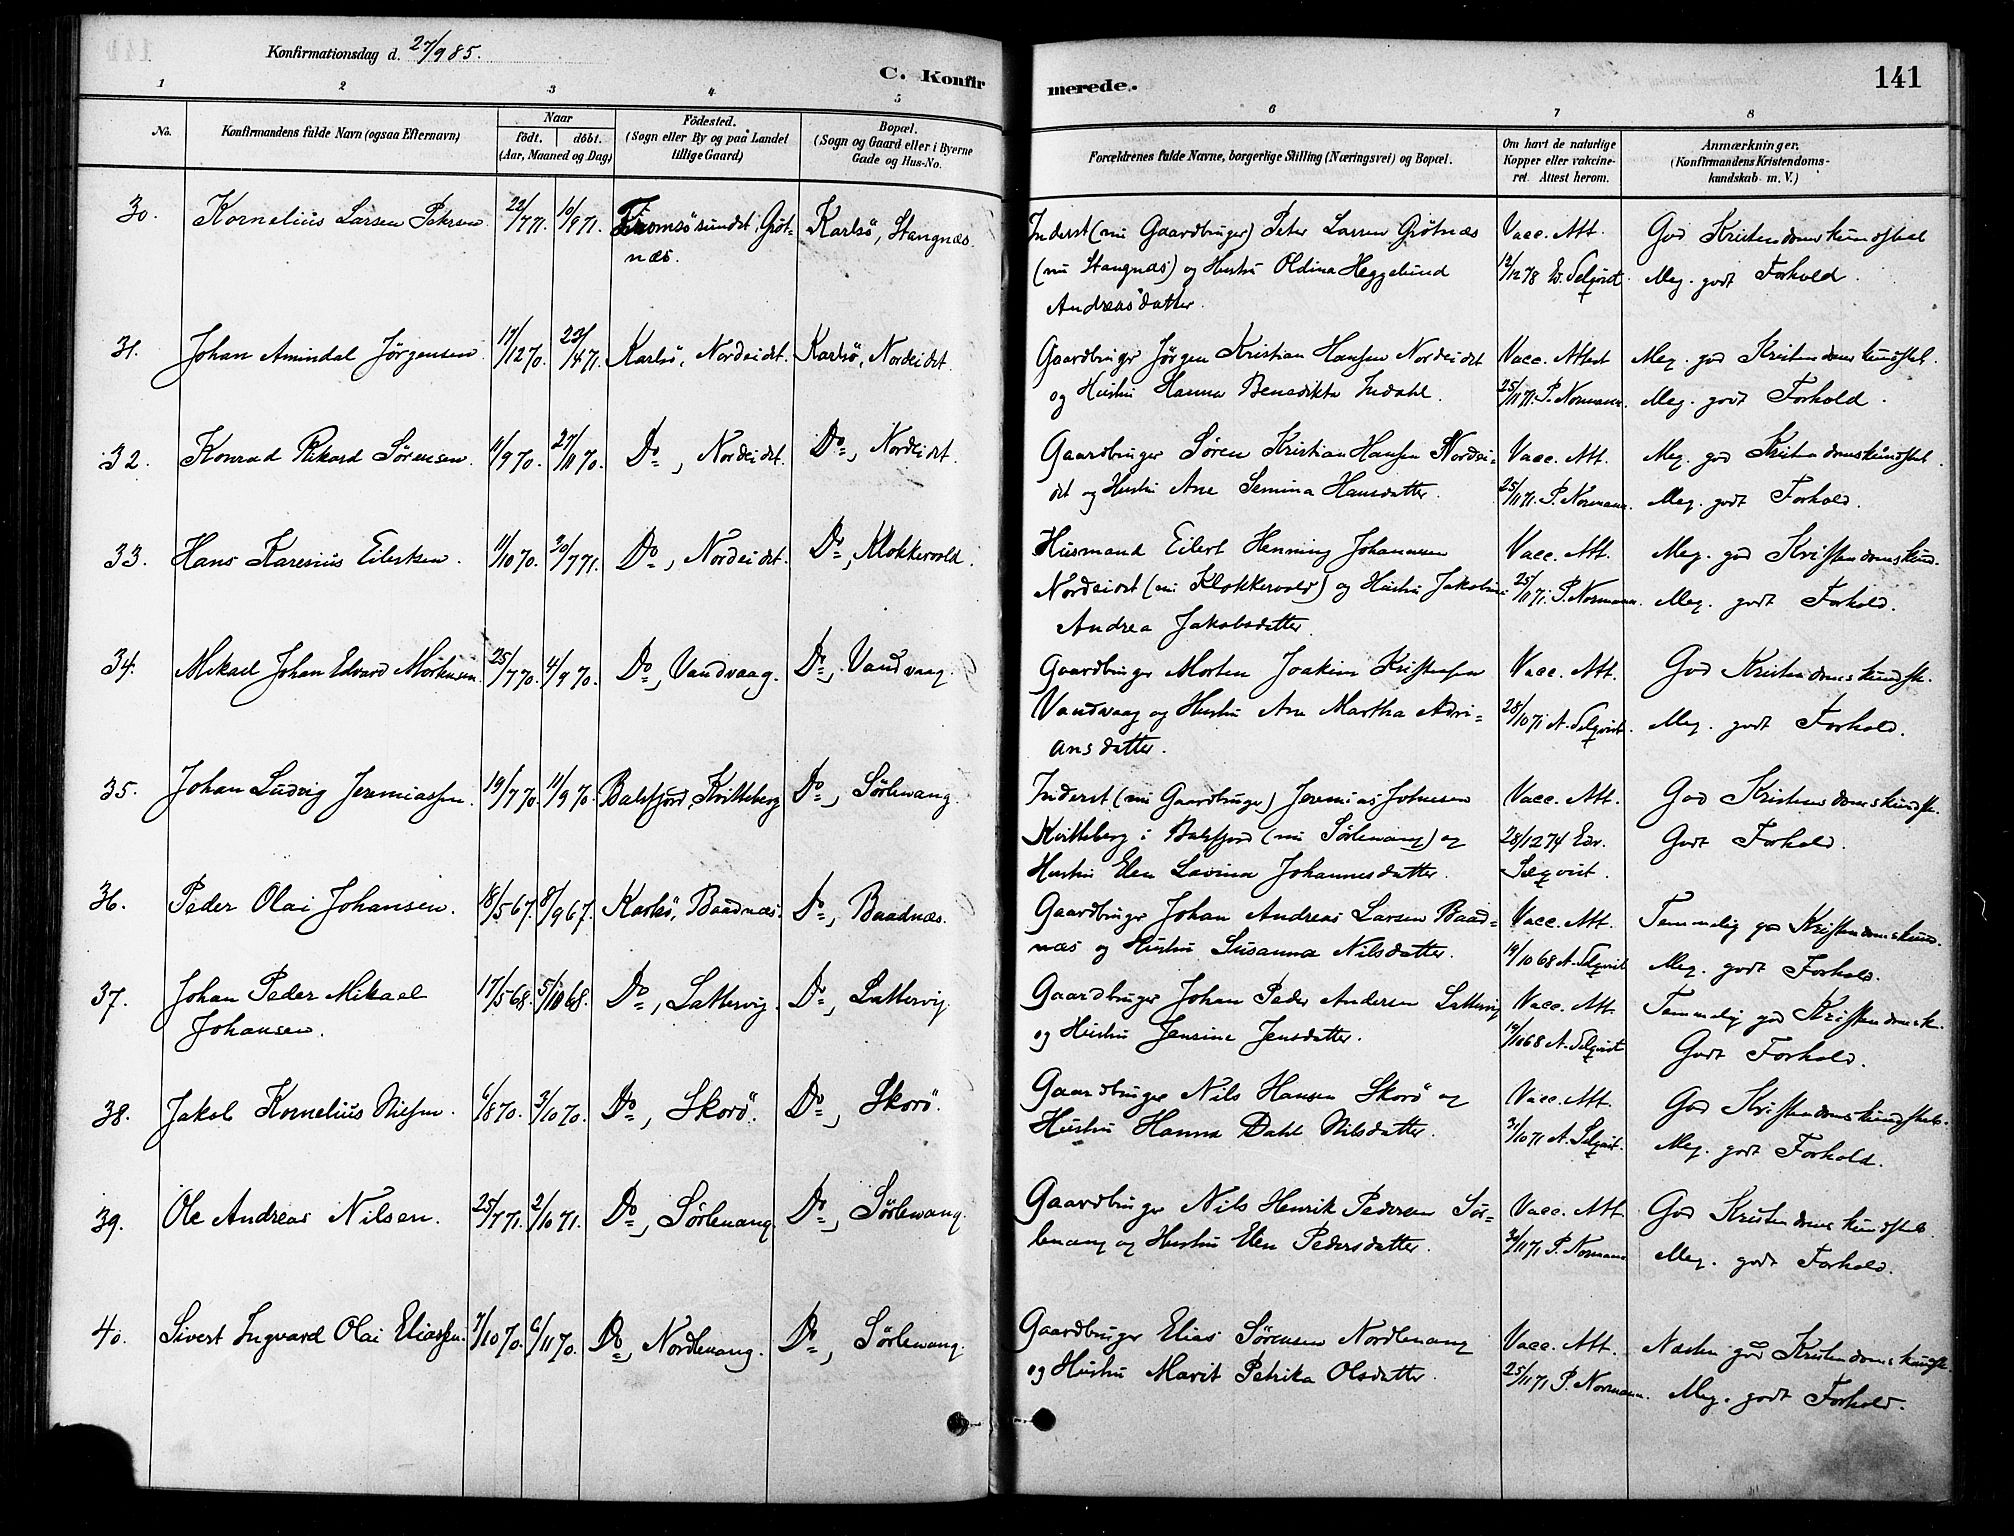 Konfirmationsdag d. 27/9 85.
C. Konfirmerede.
141
1 2 3 4 5 6 7 8
No.
Konfirmandens fulde Navn (ogsaa Efternavn)
Naar
födt. döbt.
(Aar, Maaned og Dag)
Födested.
(Sogn eller By og paa Landet
tillige Gaard)
Bopæl.
(Sogn og Gaard eller i Byerne
Gade og Hus-No.
Forældrenes fulde Navne, borgerlige Stilling (Næringsvei) og Bopæl.
Om havt de naturlige
Kopper eller vakcine-
ret. Attest herom.
Anmærkninger.
(Konfirmandens Kristendoms-
kundskab m. V.)
30. Kornelius Larsen Petersen 22/7 71. 10/9 71. Tromsösundet, Gröt-
næs.
Karlsö, Stangnæs.
Inderst (nu Gaardbruger) Peter Larsen Grötnæs
(nu Stangnæs) og Hustru Oldina Heggelund
Andreasdatter.
Vacc. Att.
12/12 78 E. Selqvist.
God Kristendomskundskab
Meg. godt Forhold.
31. Johan Amindal Jörgensen 17/12 70. 23/4 71. Karlsö, Nordeidet. Karlsö, Nordeidet.
Gaardbruger Jörgen Kristian Hansen Nordeidet
og Hustru Hanna Benedikta Indahl.
Vacc. Attest
25/11 71. P. Normann.
Meg. god Kristendomskundskab.
Meg. godt Forhold.
32. Konrad Rikard Sörensen. 11/9 70. 27/11 70. Do, Nordeidet. Do, Nordeidet.
Gaardbruger Sören Kristian Hansen Nordei-
det og Hustru Ane Semina Hansdatter.
Vacc. Att.
25/11 71. P. Normann.
Meg. god Kristendomskundskab.
Meg. godt Forhold.
33. Hans Karenius Eilertsen. 11/10 70. 30/7 71. Do, Nordeidet. Do, Klokkervold.
Husmand Eilert Henning Johannesen
Nordeidet (nu Klokkervold) og Hustru Jakobine
Andrea Jakobsdatter.
Vacc. Att.
25/11 71. P. Normann.
Meg. god Kristendomskund.
Meg. godt Forhold.
34. Mikael Johan Edvard Mortensen 25/7 70. 4/9 70. Do, Vandvaag. Do, Vandvaag.
Gaardbruger Morten Joakim Kristensen
Vandvaag og Hustru Ane Martha Adri-
ansdatter.
Vacc. Att.
28/10 71 A. Selqvist.
God Kristendomskundsk.
Meg. godt Forhold.
35. Johan Ludvig Jeremiassen. 19/7 70. 11/9 70. Balsfjord, Kvitteberg Do, Sörlenang.
Inderst (nu Gaardbruger) Jeremias Johnsen
Kvitteberg i Balsfjord (nu Sörlenang) og
Hustru Elen Lavina Johannesdatter.
Vacc. Att.
28/12 74 Edv.
Selqvist.
God Kristendomskundsk.
Godt Forhold.
36. Peder Olai Johansen. 18/5 67. 8/9 67. Karlsö, Baadnæs. Do, Baadnæs.
Gaardbruger Johan Andreas Larsen Baad-
næs og Hustru Susanna Nilsdatter.
Vacc. Att.
19/10 68 A. Selqvist
Temmelig god Kristendomskund.
Meg. godt Forhold.
37. Johan Peder Mikael
Johansen.
17/5 68. 5/10 68. Do, Lattervig. Do, Lattervig.
Gaardbruger Johan Peder Andersen Lattervig
og Hustru Jensine Jensdatter.
Vacc. Att.
19/10 68 A. Selqvist
Temmelig god Kristendomsk.
Godt Forhold.
38. Jakob Kornelius Nilsen. 6/8 70. 3/10 70. Do, Skorö. Do, Skorö.
Gaardbruger Nils Hansen Skorö og
Hustru Hanna Dahl Nilsdatter.
Vacc. Att.
31/10 71 A. Selqvist.
God Kristendomskundskab.
Meg. godt Forhold.
39. Ole Andreas Nilsen. 25/7 71. 2/10 71. Do, Sörlenang. Do, Sörlenang.
Gaardbruger Nils Henrik Pedersen Sör-
lenang og Hustru Elen Pedersdatter.
Vacc. Att.
P. Normann
God Kristendomskundskab.
Meg. godt Forhold.
40. Sivert Ingvard Olai Eliassen. 7/10 70. 6/11 70. Do, Nordlenang. Do, Sörlenang.
Gaardbruger Elias Sörensen Nordlenang
og Hustru Marit Petrika Olsdatter.
Vacc. Att.
25/11 71 P. Normann.
Næsten god Kristendomskundsk.
Meg. godt Forhold.